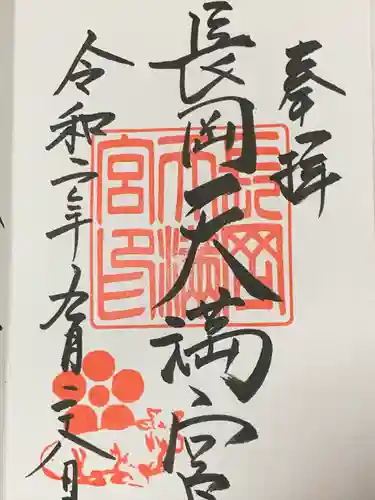 奉拝
長岡天満宮
長岡天満宮印
令和二年九月二八日